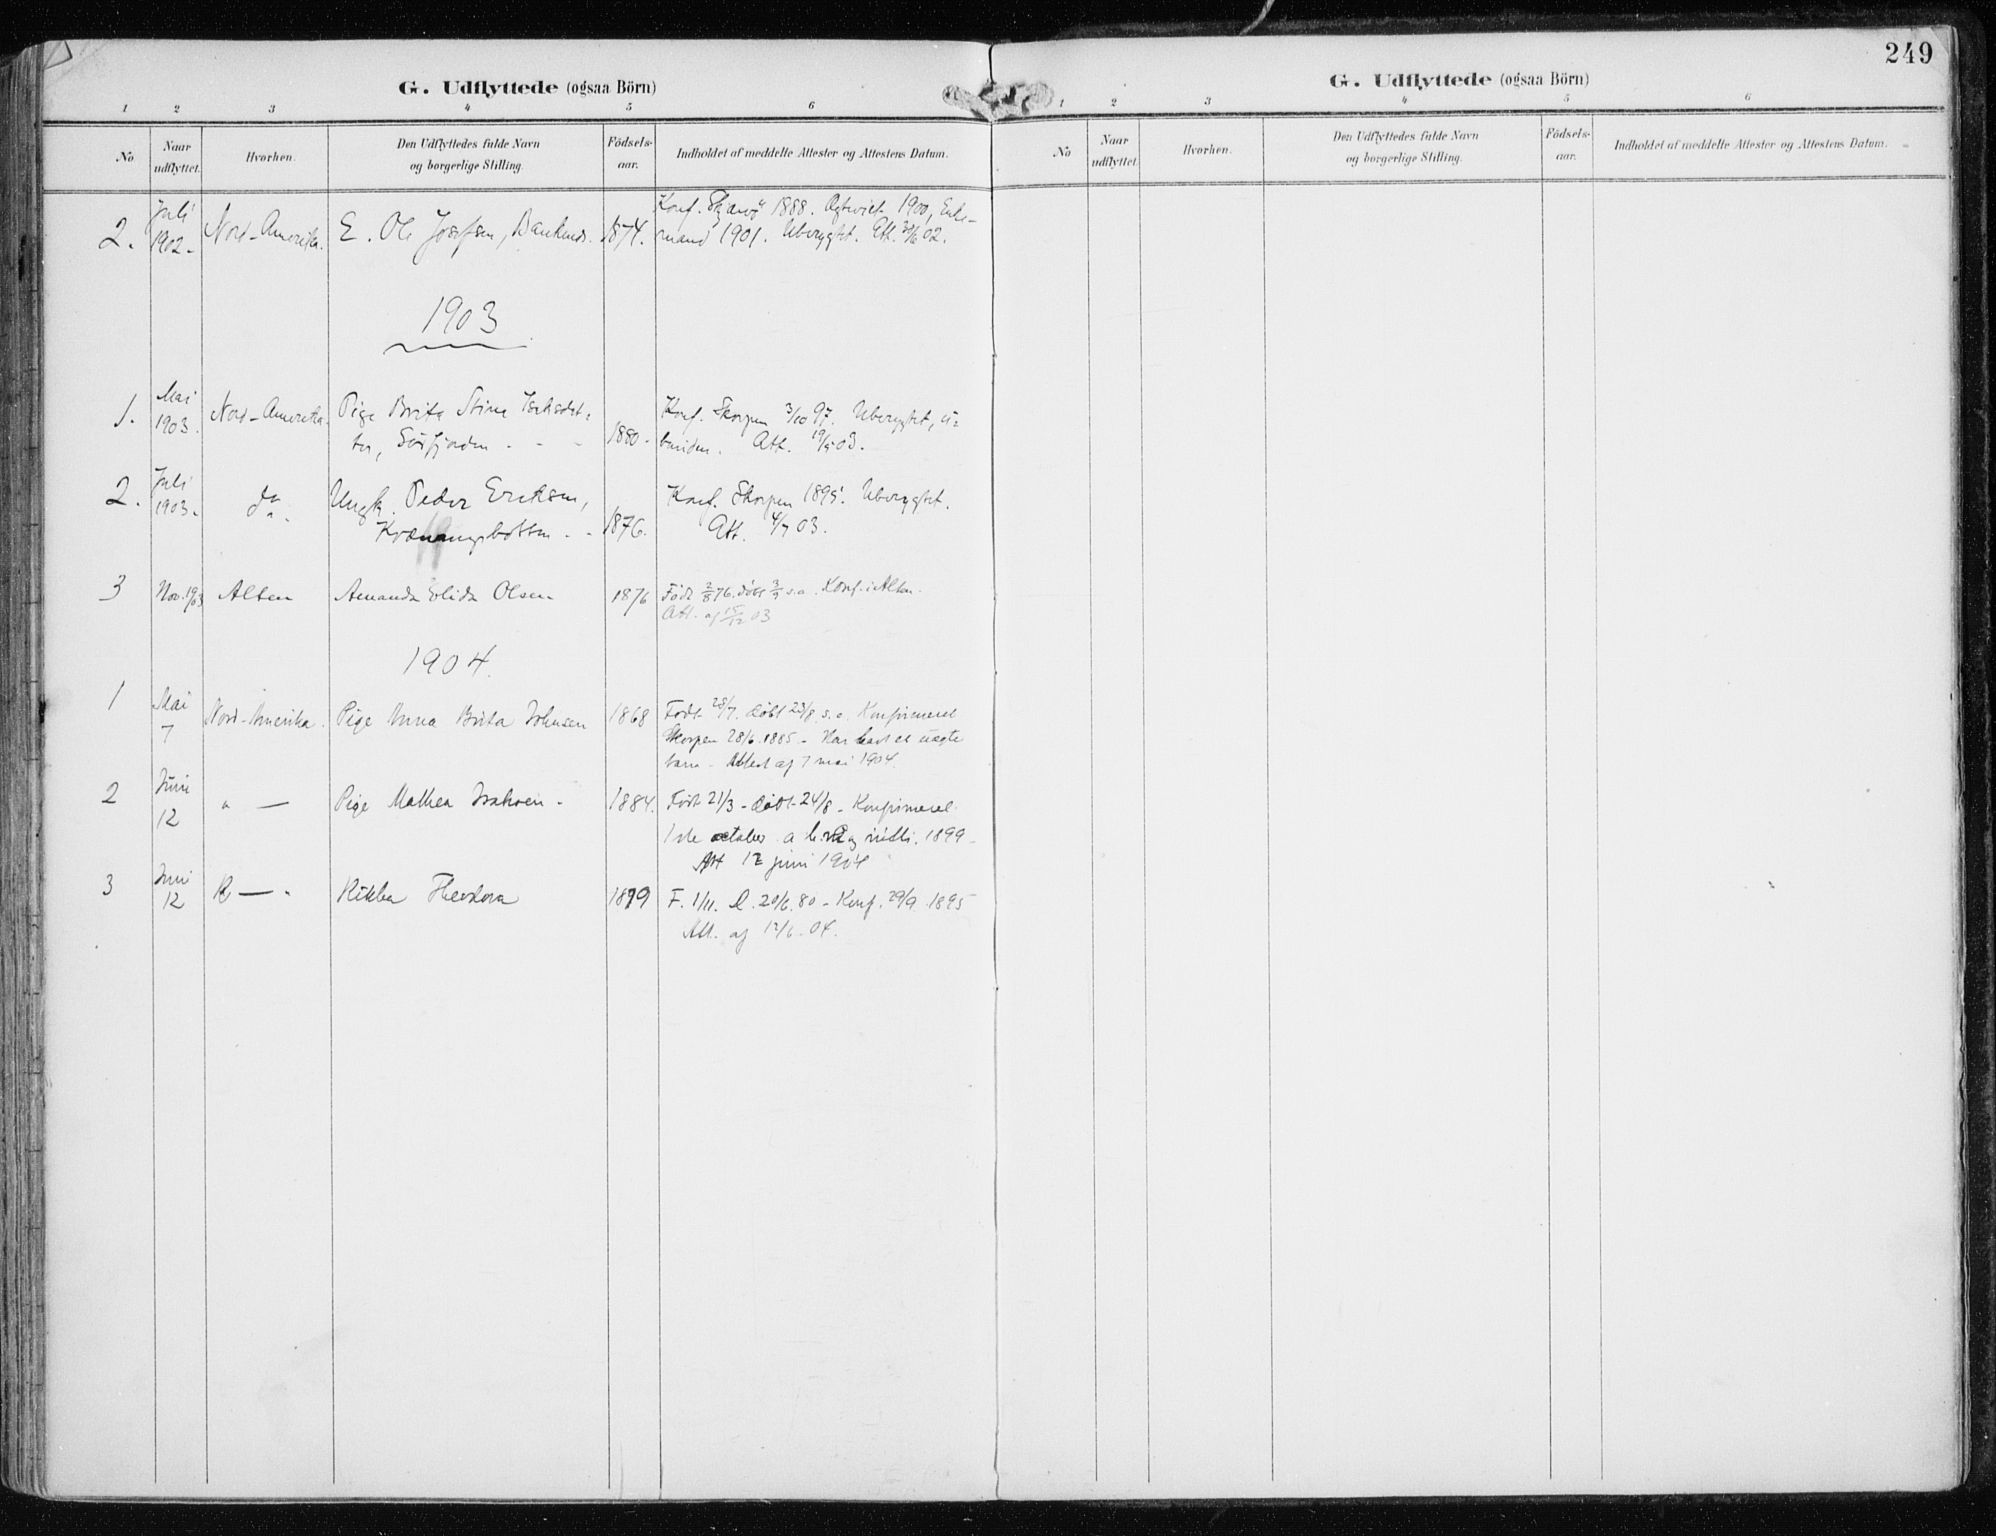 G. Udflyttede (ogsaa Börn)
1 2 3 4 5 6
No
Naar udflyttet.
Hvorhen.
Den Udflyttedes fulde Navn og borgerlige Stilling.
Födsels-aar.
Indholdet af meddelte Attester og Attestens Datum.
2. Juli 1902 - Nord-Amerika. E. Ole Josefsen, 1874. Konf. Skjervö 1888. 1900, Enke-
mand 1901. Ubrygtet. Att. 02.
1903
1. Mai 1903. Nord-Amerika. Pige Brita Stine
ter, Sörfjorden - - - 1880 - Konf. Skorpen 3/10 97. Ubrygtet, u-
bunden. Att. 19/5 03.
2. Juli 1903 - do. Ungk. Peder Eriksen,
Kvænangsbotten - - 1876. Konf. Skorpen 1895. Ubrygtet.
Att. 4/7 03.
3 Nov. 1903 Alten Amanda Elida Olsen 1876 Född 2/8 76. döbt 3/9 s.a. Konf. i Alten.
Att. af 15/12 03
1904.
1 Mai 7 Nord-Amerika. Pige Anna Brita Johnsen 1868 Födt 28/7. döbt 23/8 s.a. Konfirmeret
Skorpen 28/6 1885 - Har havt et uægte
barn - Attest af 7 mai 1904.
2 Juni 12 " — Pige Mathea Isaksen - 1884. Född 21/3 - döbt 24/8 - Konfirmeret
1ste october 1899 -
Att 12 juni 1904
3 Juni 12 — " Rikka Theodora 1879 F. 1/11. D. 20/6. 80 - Konf. 29/9 1895
Att. af 12/6 - 04.
249
G. Udflyttede (ogsaa Börn)
1 2 3 4 5 6
No
Naar udflyttet.
Hvorhen.
Den Udflyttedes fulde Navn og borgerlige Stilling.
Födsels-aar.
Indholdet af meddelte Attester og Attestens Datum.